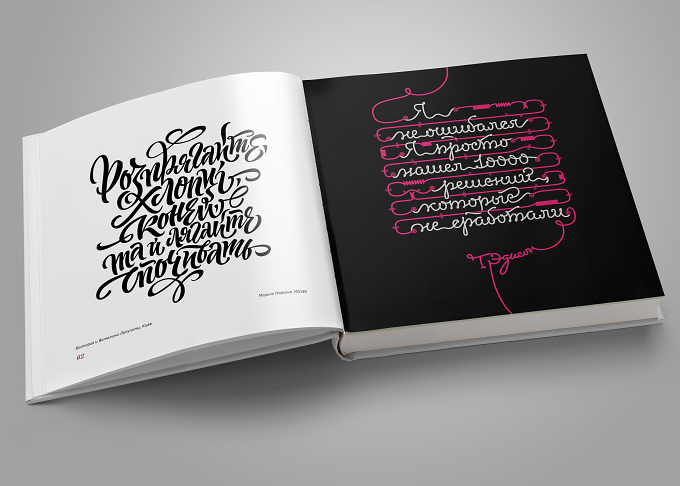 Розпрягайте
хлопці
коней
та й лягайте
спочивать
Виктория и Виталина Лопухины, Киев
62
Марина Марьина, Москва
Я
не ошибался
Я просто
нашел 10000
решений,
которые
не сработали
Т. Эдисон